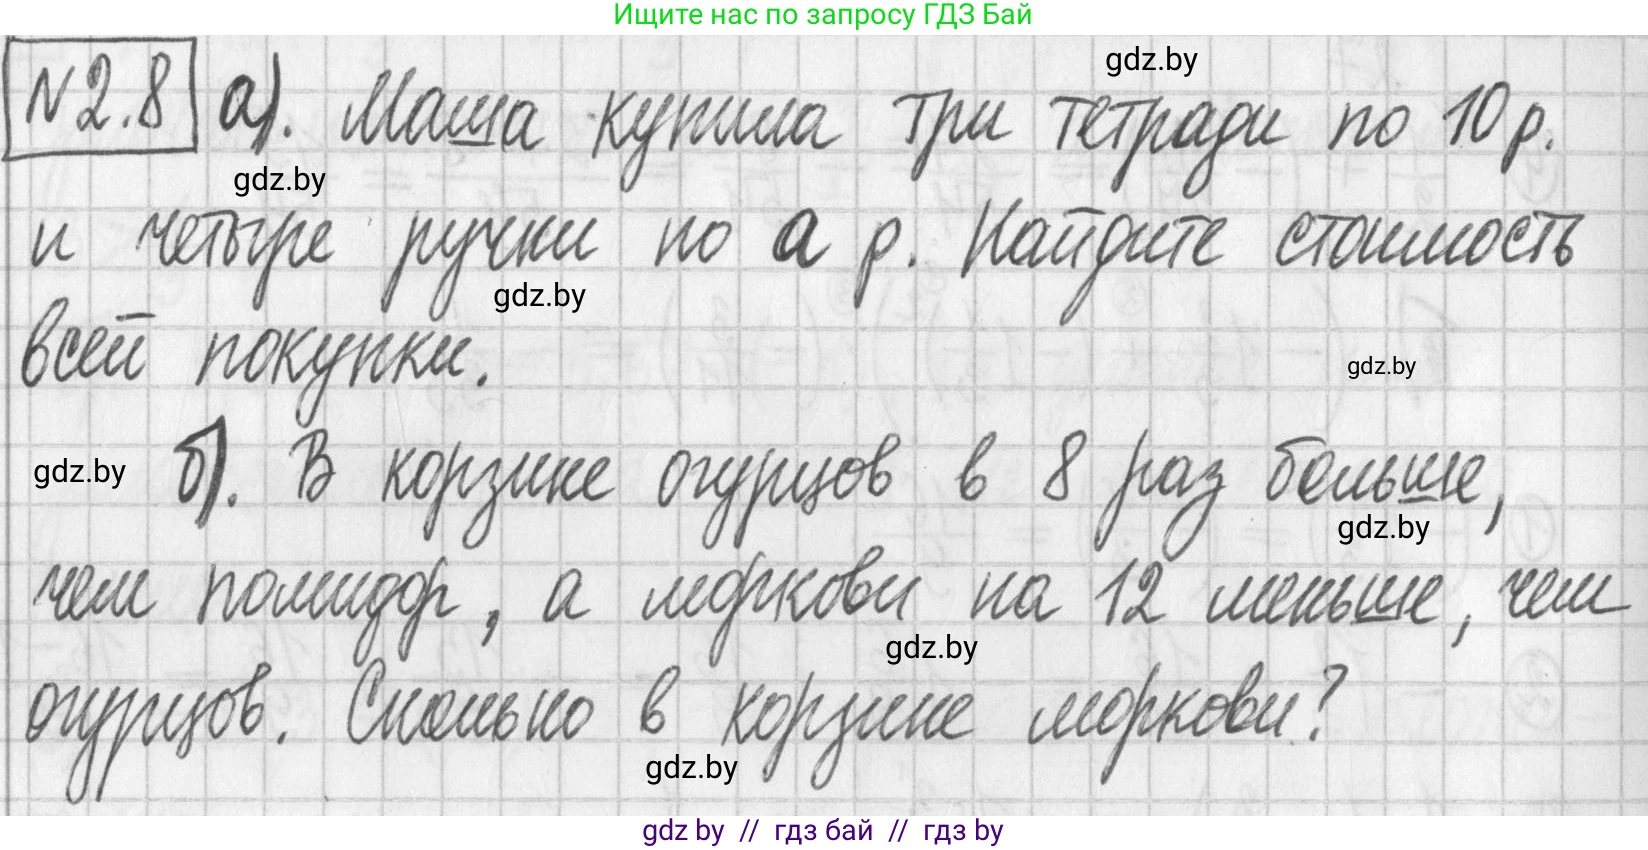 Ищите нас по запросу ГДЗ Бай
gdz.by
№2.8 а). Маша купила три тетради по 10 р.
gdz.by
и четыре ручки по a р. Найдите стоимость
gdz.by
всей покупки.
gdz.by
gdz.by б). В корзине огурцов в 8 раз больше,
gdz.by
чем помидор, а моркови на 12 меньше, чем
gdz.by
огурцов. Сколько в корзине моркови?
gdz.by
gdz by // гдз бай // гдз by